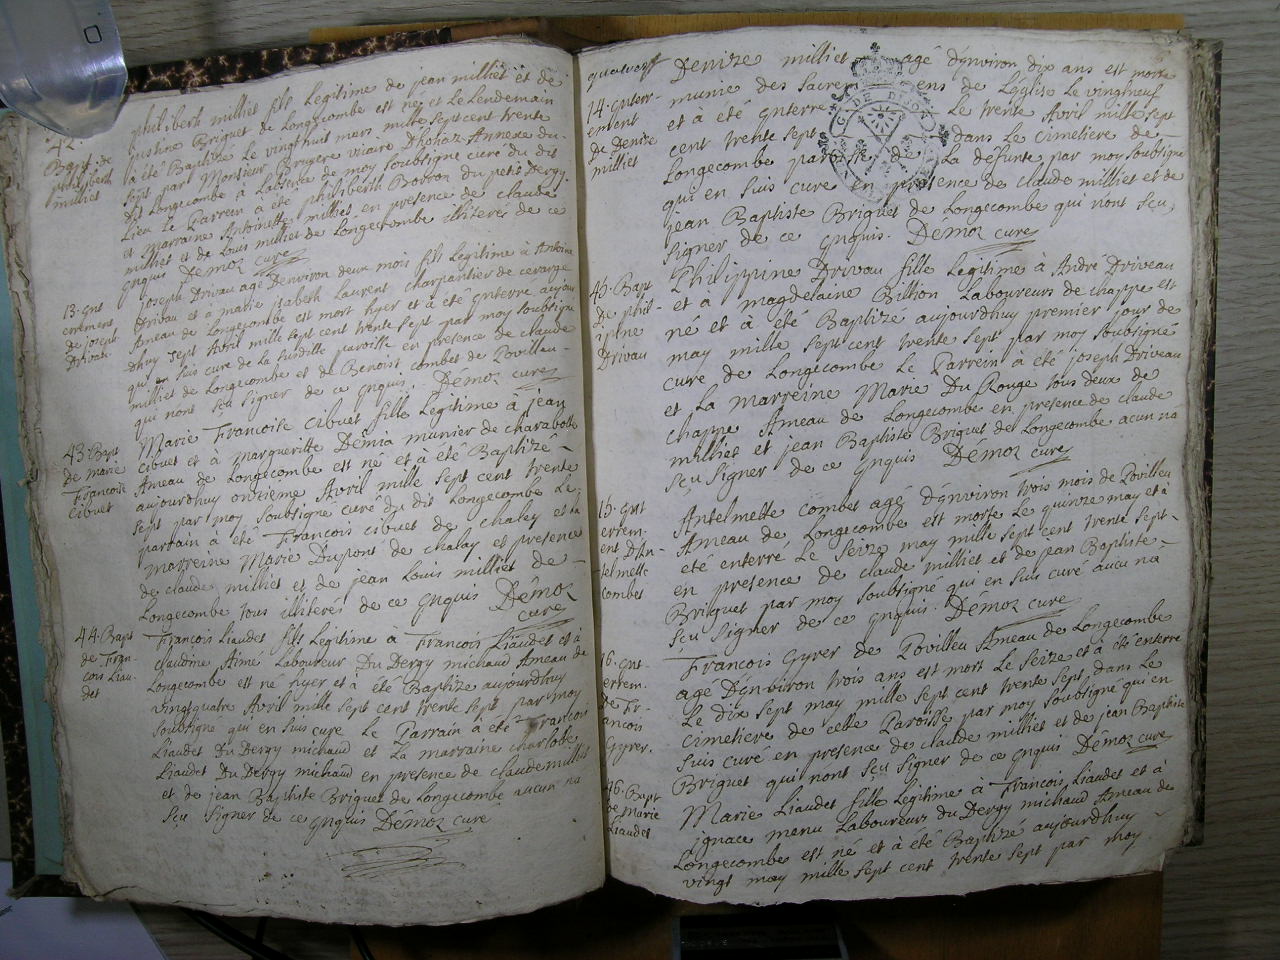 42.
Bapt. de
philiberth
milliet
philiberth milliet fils Legitime de jean milliet et de
justine Briguet de Longecombe est né et Le Lendemain
a été Baptizé Le vingt huit mars mille sept cent trente
sept par Monsieur Brugere vicaire Dhohaz Annexe du
dit Longecombe à Labsence de moy soubsigne curé du dit
Lieu Le Parrein à été philiberth Bobron du petit Dergy
et Marraine Antoinette milliet en presence de claude
milliet et de Louis milliet de Longecombe illiteres de ce
gnquis Démoz curé
13. gnt
errement
de joseph
Drivau
joseph Drivau agé Denviron deux mois fils Legitime à Antoine
Drivau et à marie isabeth Laurent charpantier de cevarge
Ameau de Longecombe est mort hyer et à été gnterre aujour
dhuy sept Avril mille sept cent trente sept par moy soubsigne
qui en suis cure de La susditte paroisse en presence de claude
milliet de Longecombe et de Benoist combet de Povilleu
qui nont sçu signer de ce gnquis. Démoz curé
43. Bapt
de marie
Françoise
cibuet
Marie Francoise cibuet fille Legitime à jean
cibuet et à margueritte Démia munier de charabotte
Ameau de Longecombe est né et à été Baptizé
aujourdhuy onzieme Avril mille sept cent trente
sept par moy soubsigne curé du dit Longecombe Le
parrain à été François cibuet de chaley et la
marreine Marie Dupont de chalay et presence
de claude milliet et de jean Louis milliet de
Longecombe tous illiteres de ce gnquis Démoz
curé
44. Bapt
de Fran-
cois Liau-
det
François Liaudet fils Legitime à François Liaudet et à
claudine Aime Laboureur Du Dergy michaud Ameau de
Longecombe est né hyer et à été Baptizé aujourdhuy
vingtquatre Avril mille sept cent trente sept par moy
soubsigné qui en suis cure Le Parrain à été François
Liaudet Du Dergy michaud et La marraine charlotte
Liaudet Du Dergy michaud en presence de claude milliet
et de jean Baptiste Briguet de Longecombe aucun na
sçu signer de ce gnquis Démoz curé
14. gnterr-
ement
De Denize
milliet
Denize milliet agé dgnviron dix ans est morte
munie des Sacremens de Léglise Le vingtneuf
et à été gnterre Le trente Avril mille sept
cent trente sept dans Le cimetiere de
Longecombe paroisse de La defunte par moy soubsigné
qui en suis cure en presence de claude milliet et de
jean Baptiste Briguet de Longecombe qui nont sçu
signer de ce gnquis. Démoz curé
45. Bapt
De phil-
ipine
Drivau
Philippine Drivau fille Legitime à André Driveau
et à magdelaine Billion Laboureurs de chappe est
né et à été Baptizé aujourdhuy premier jour de
may mille sept cent trente sept par moy soubsigné
cure de Longecombe Le Parrein à été joseph Driveau
et La marreine Marie Du Rouge tous deux de
chappe Ameau de Longecombe en presence de claude
milliet et jean Baptiste Briguet de Longecombe acun na
sçu signer de ce gnquis Démoz curé
15. gnt
errem-
ent D'An-
telmette
combet
Antelmette combet agé dgnviron trois mois de Povilleu
Ameau de Longecombe est morte Le quinze may et à
été enterré Le seize may mille sept cent trente sept
en presence de claude milliet et de jean Baptiste
Briguet par moy soubsigné qui en suis curé aucu na
sçu signer de ce gnquis. Démoz curé
16. gnt-
errem-
de Fr-
ancois
Gyrer.
François Gyrer de Povilleu Ameau de Longecombe
agé Dgnviron trois ans est mort Le seize et à été enterre
Le dix sept may mille sept cent trente sept dans Le
cimetiere de cette Paroisse par moy soubsigné qui en
suis curé en presence de claude milliet et de jean Baptiste
Briguet qui nont sçu signer de ce gnquis Démoz curé
46. Bapt
de Marie
Liaudet
Marie Liaudet fille Legitime à François Liaudet et à
ignace menu Laboureurs du Dergy michaud Ameau de
Longecombe est né et à été Baptizé aujourdhuy
vingt may mille sept cent trente sept par moy